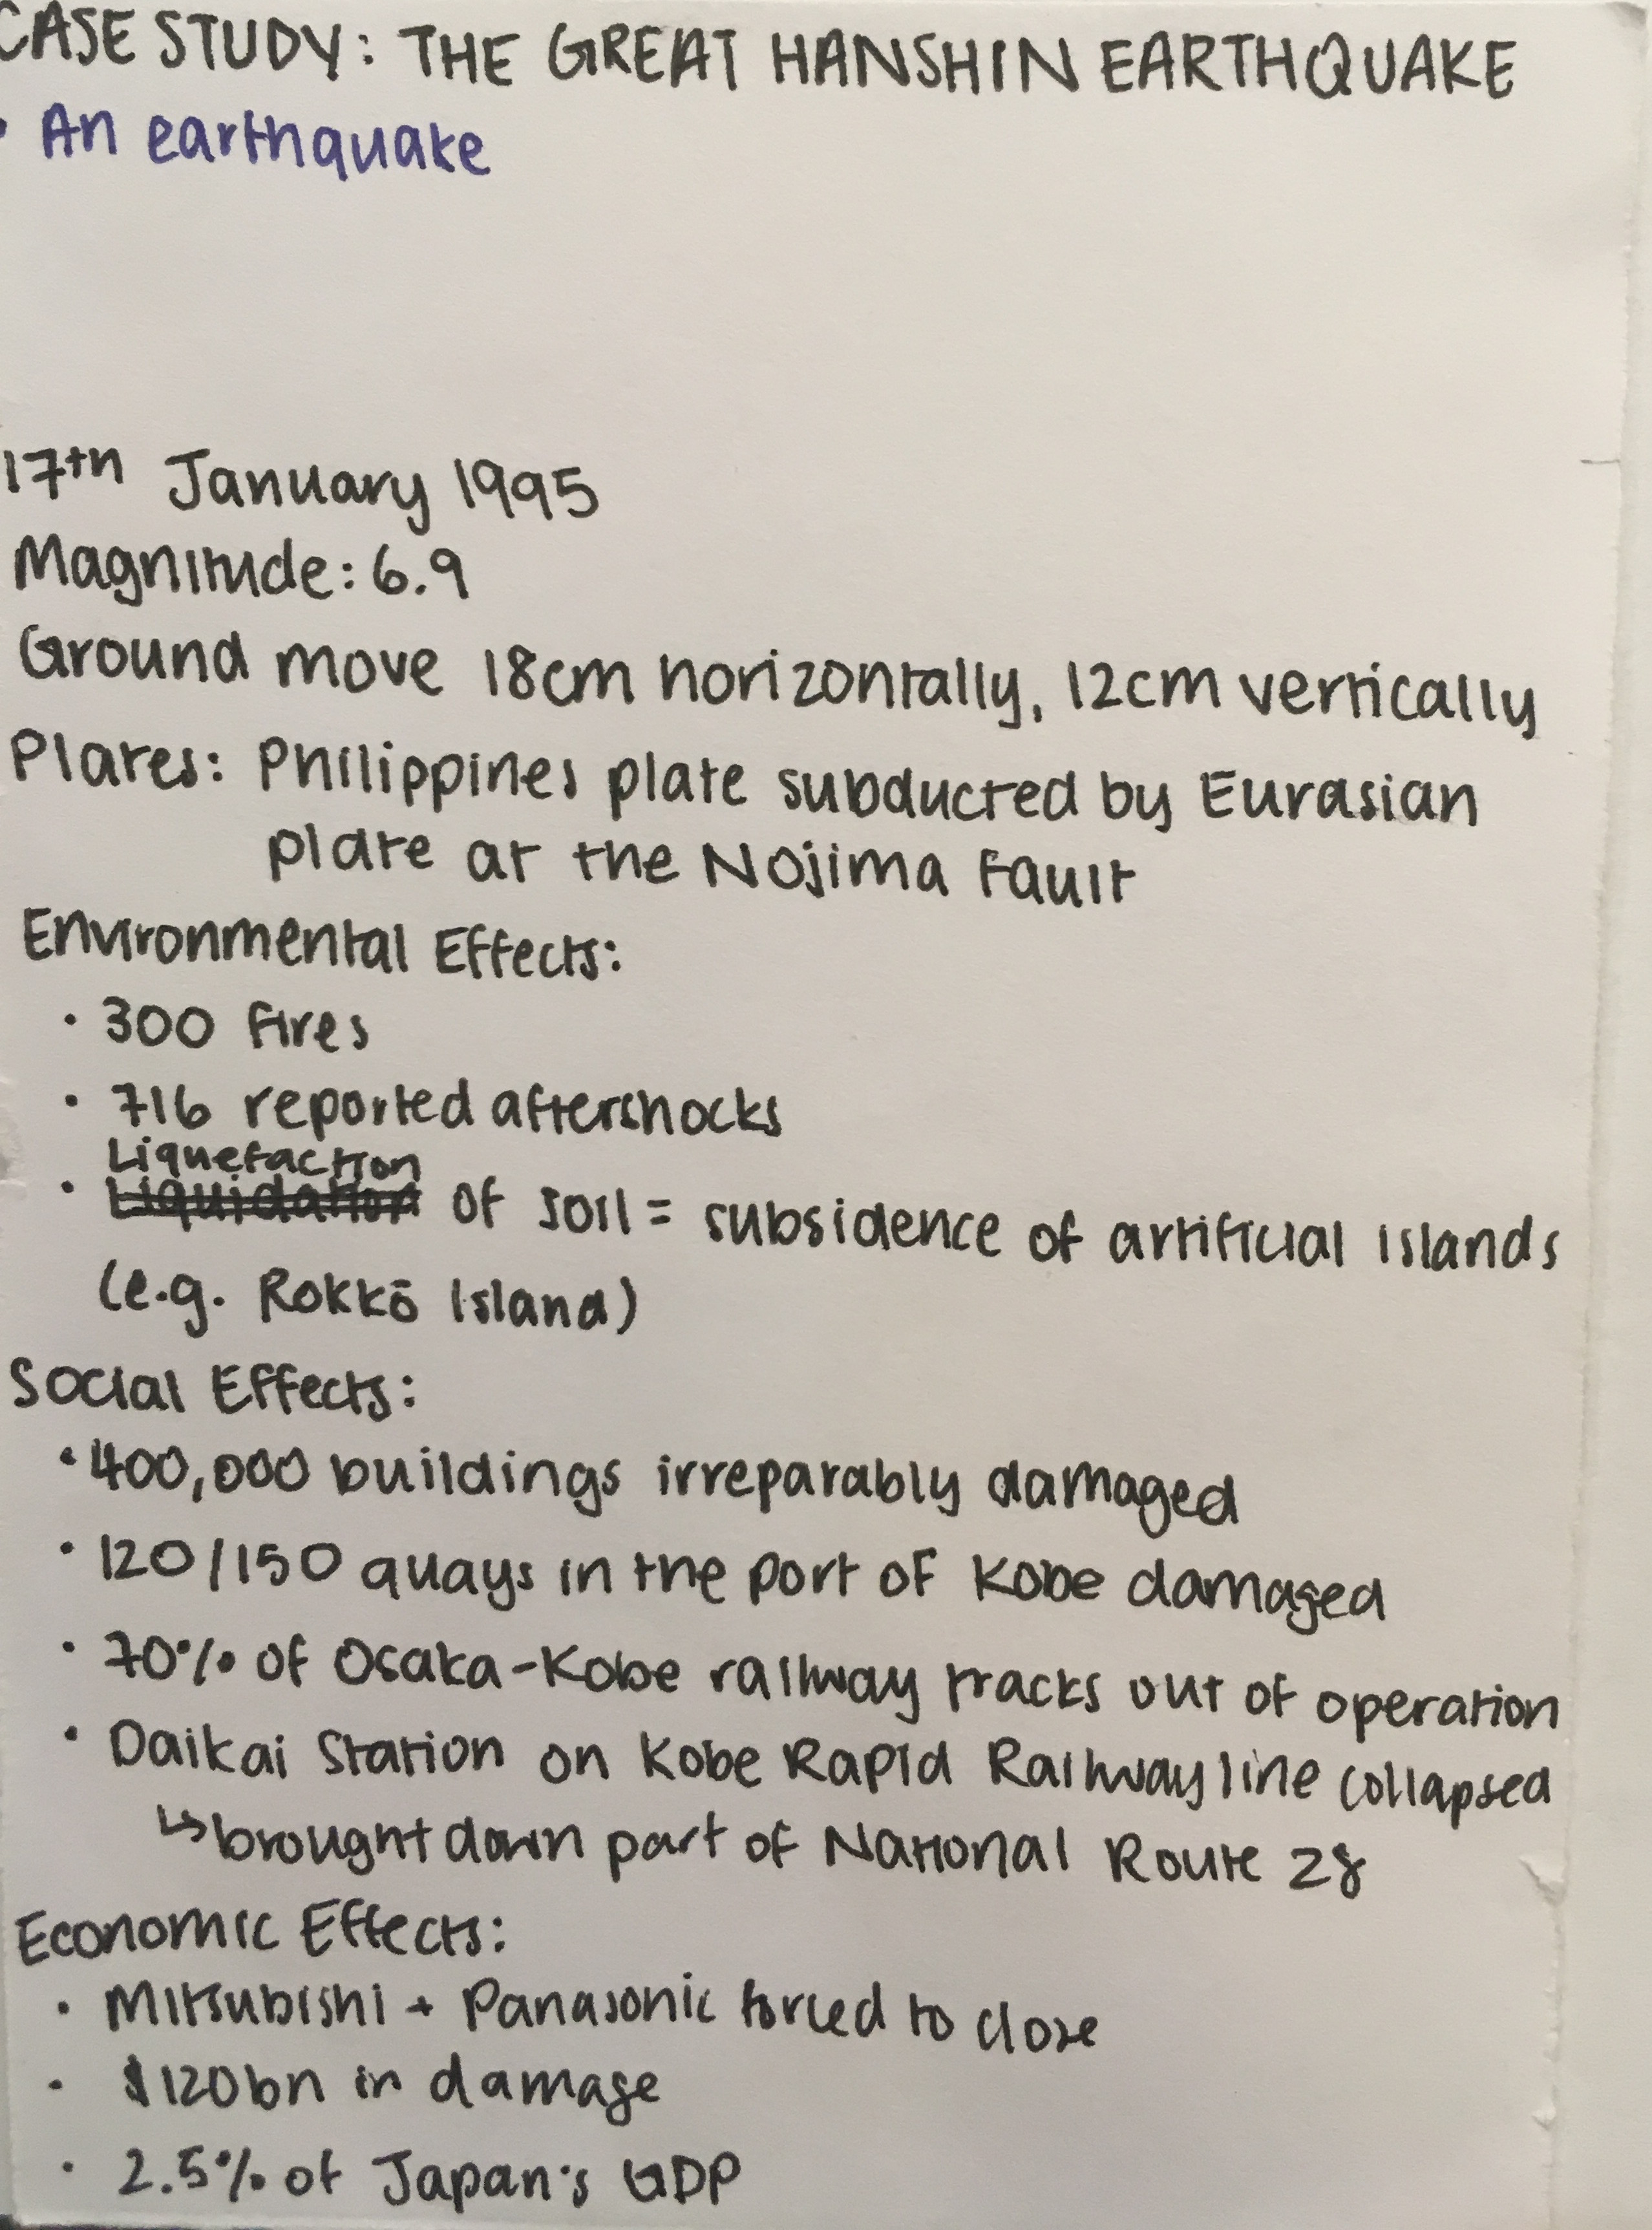 CASE STUDY: THE GREAT HANSHIN EARTHQUAKE
• An earthquake
17th January 1995
Magnitude: 6.9
Ground move 18cm horizontally, 12cm vertically
Plates: Philippines plate subducted by Eurasian
plate at the Nojima Fault
Environmental Effects:
• 300 fires
• 716 reported aftershocks
Liquefaction
• Liquidation of soil = subsidence of artificial islands
(e.g. Rokkō Island)
Social Effects:
• 400,000 buildings irreparably damaged
• 120/150 quays in the port of Kobe damaged
• 70% of Osaka-Kobe railway tracks out of operation
• Daikai Station on Kobe Rapid Railway line collapsed
↳ brought down part of National Route 28
Economic Effects:
• Mitsubishi + Panasonic forced to close
• $120bn in damage
• 2.5% of Japan's GDP